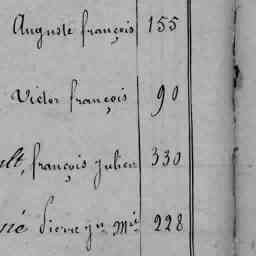 Auguste françois 155
Victor françois 90
ult, françois julien 330
né Pierre jn Mie 228